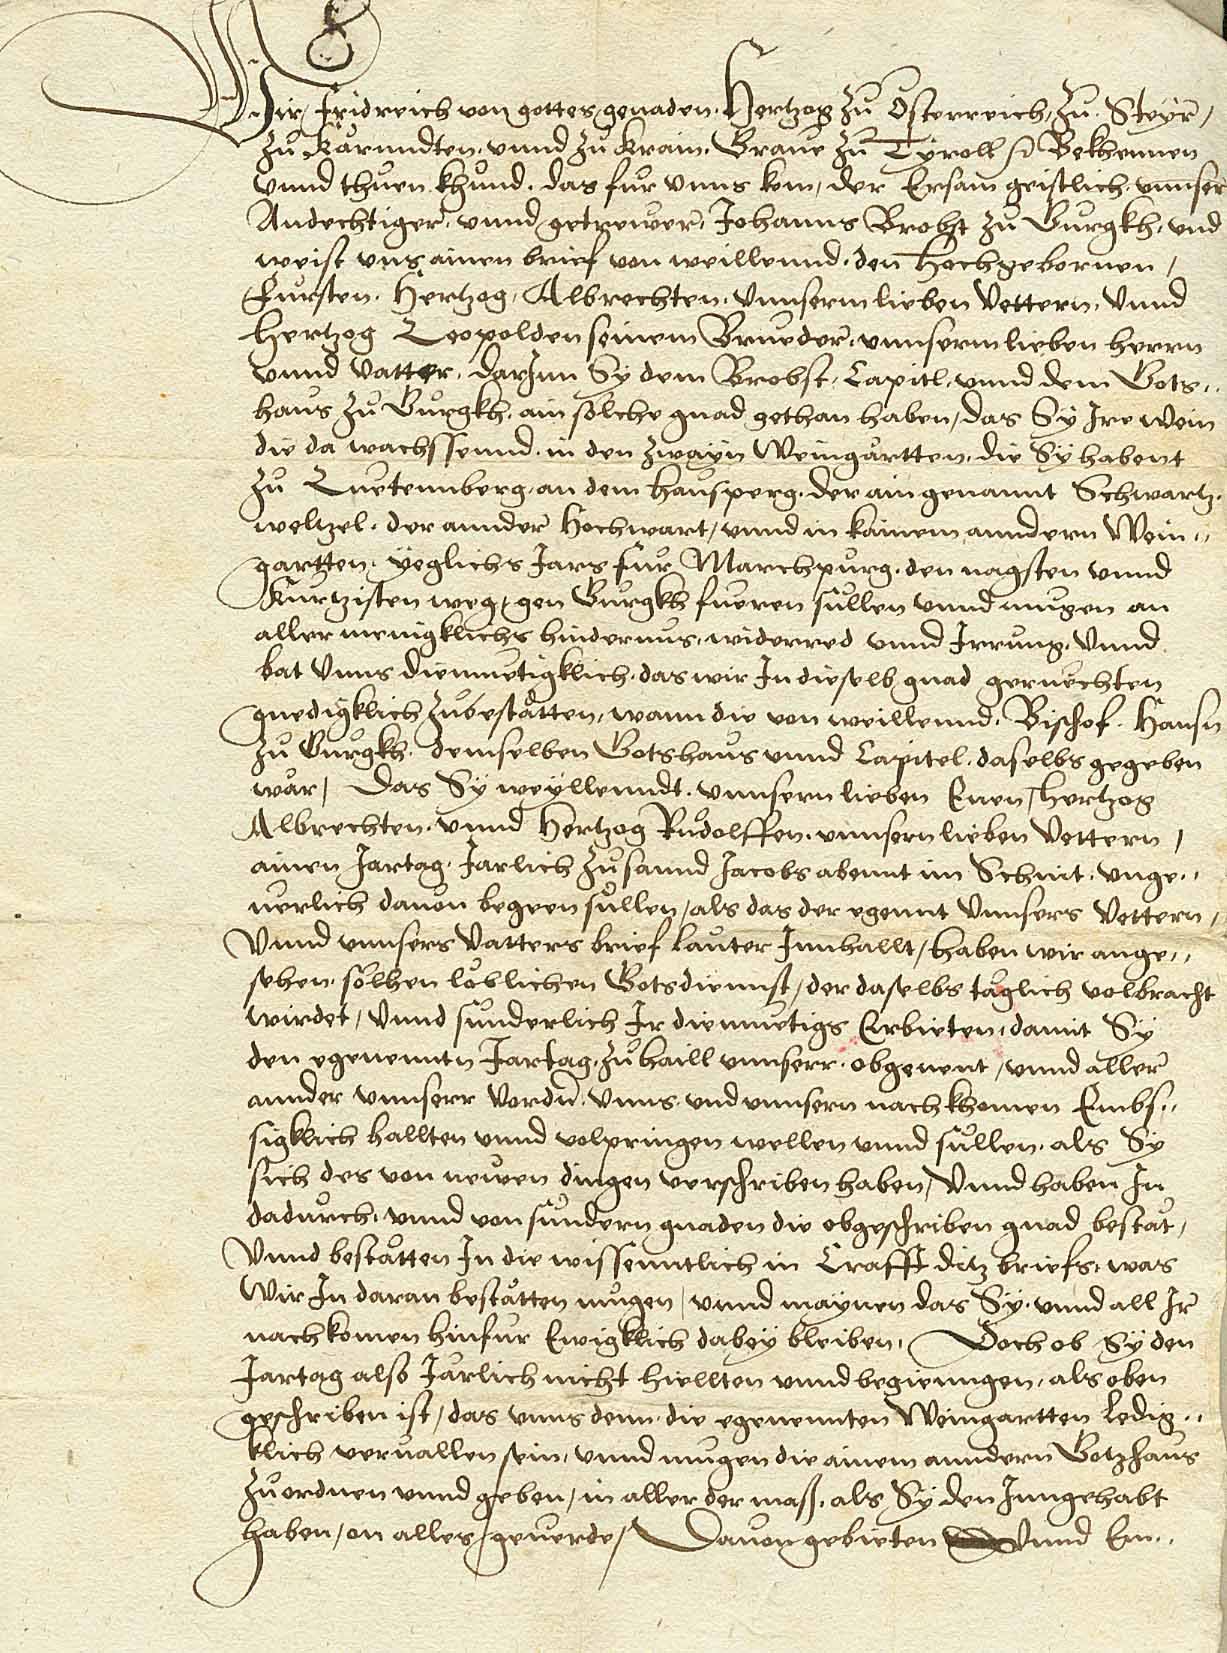 8
Wir Fridreich von gottes genaden. Hertzog zu Österreich, zu Steyr,
zu Kärnndten, vnnd zu Krain. Graue zu Tyroll &c Bekhennen
vnnd thuen khund. das fur vnns kom, der Ersam geistlich vnnser
Andechtiger, vnnd getrewer, Johanns Brobst zu Gurgkh, vnd
weist vns ainen brief von weillennd. den Hochgebornen,
Fursten. Hertzog, Albrechten, Vnnserm lieben Vettern, Vnnd
Hertzog Leopolden seinem Brueder, vnnserm lieben herrn
vnnd Vatter, darInn Sy dem Brobst, Capitl, vnnd dem Gots„
haus zu Gurgkh, ain solche gnad gethan haben, das Sy Ire wein
die da wachssennd, in den zwayn Weingärtten, die Sy habent
zu Luetennberg, an dem Hausperg, der ain genannt Schwartz„
weltzel, der annder Hochwart, vnnd in kainem anndern Wein„
gartten, Yeglichs Jars fur Marchpurg, den nagsten vnnd
Kurtzisten weg, gen Gurgkh fueren sullen vnnd mugen an
aller menigklichs hindernus, widerred vnnd Irrung. Vnnd
bat Vnns diemuetigklich, das wir In dieselb gnad geruechten
gnedigklich zubestätten, wann die von weillennd, Bischof. Hansn
zu Gurgkh. demselben Gotshaus vnnd Capitel, daselbs gegeben
wär, Das Sy weyllenndt, vnnsern lieben Enen, Hertzog
Albrechten, vnnd Hertzog Rudolffen, vnnsern lieben Vettern,
ainen Jartag, Jarlich zu sannd Jacobs abennt im Schnit, vnge„
uerlich dauon begeen sullen, als das der egennt Vnnsers Vettern,
Vnnd vnnsers Vatters brief lauter Innhallt, haben wir ange„
sehen, solhen loblichen Gotsdiennst, der daselbs täglich volbracht
wirdet, Vnnd sunderlich Ir diemuetigs Erbieten, damit Sy
den egenenntn Jartag, zu haill vnnserr, obgenent, vnnd aller
annder vnnserr Vordn̄, Vnns vnd vnnsern nachkhomen Embs„
sigklich hallten vnnd volpringen wellen vnnd sullen, als Sy
sich des von newen dingen verschriben haben, Vnnd haben In
dadurch, vnnd von sundern gnaden die obgeschriben gnad bestät,
Vnnd bestätten In die wissenntlich in Crafft ditz briefs, was
Wir In daran bestätten mugen, vnnd maynen das Sy, vnnd all Ir
nachkomen hinfur Ewigklich dabey bleiben, Doch ob Sy den
Jartag also Jarlich nicht hiellten vnnd begienngen, als oben
geschriben ist, das vnns denn, die egenennten Weingartten ledig„
klich veruallen sein, vnnd mugen die ainem anndern Gotzhaus
zuordnen vnnd geben, in aller der maß, als Sy den Inngehabt
haben, on alles geuerde, Dauon gebieten Vnnd Em„